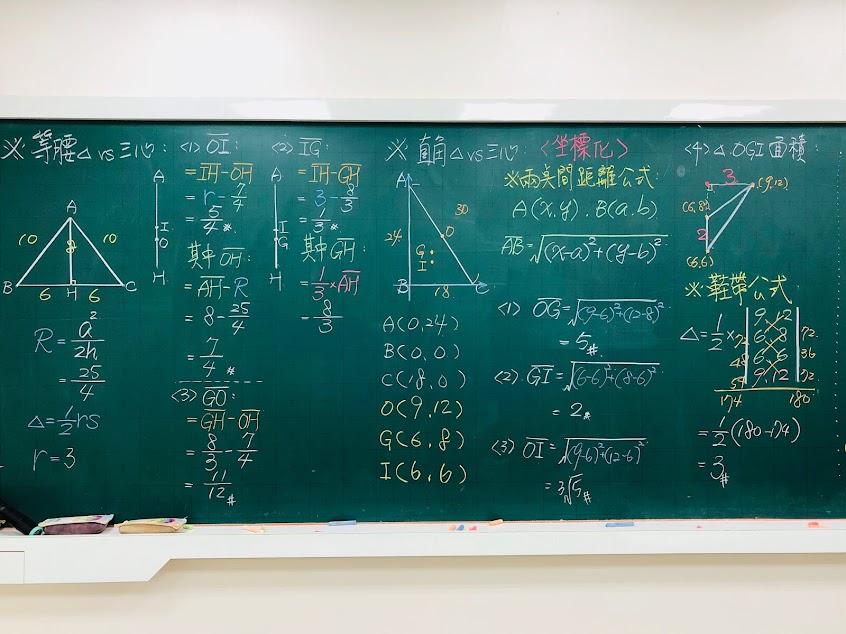 ※ 等腰△ vs 三心:
A
10
8
10
B
6
H
6
C
R = a²/2h
= 25/4
△ = 1/2 rs
r = 3
A
I
O
H
<1> OI:
= IH - OH
= r - 7/4
= 5/4 #
其中 OH:
= AH - R
= 8 - 25/4
= 7/4 #
<3> GO:
= GH - OH
= 8/3 - 7/4
= 11/12 #
A
I
G
H
<2> IG:
= IH - GH
= 3 - 8/3
= 1/3 #
其中 GH:
= 1/3 × AH
= 8/3
※ 直角△ vs 三心: <坐標化>
A
30
24
O
G
I
B
18
C
A(0,24)
B(0,0)
C(18,0)
O(9,12)
G(6,8)
I(6,6)
※兩点間距離公式:
A(x,y)、B(a,b)
AB = √(x-a)²+(y-b)²
<1> OG = √(9-6)²+(12-8)²
= 5 #
<2> GI = √(6-6)²+(8-6)²
= 2 #
<3> OI = √(9-6)²+(12-6)²
= 3√5 #
<4> △OGI面積:
3
(9,12)
(6,8)
2
(6,6)
※ 鞋帶公式
△ = 1/2 ×
9, 12
72 6, 8 72
48 6, 6 36
54 9, 12 72
174 180
= 1/2 (180-174)
= 3 #